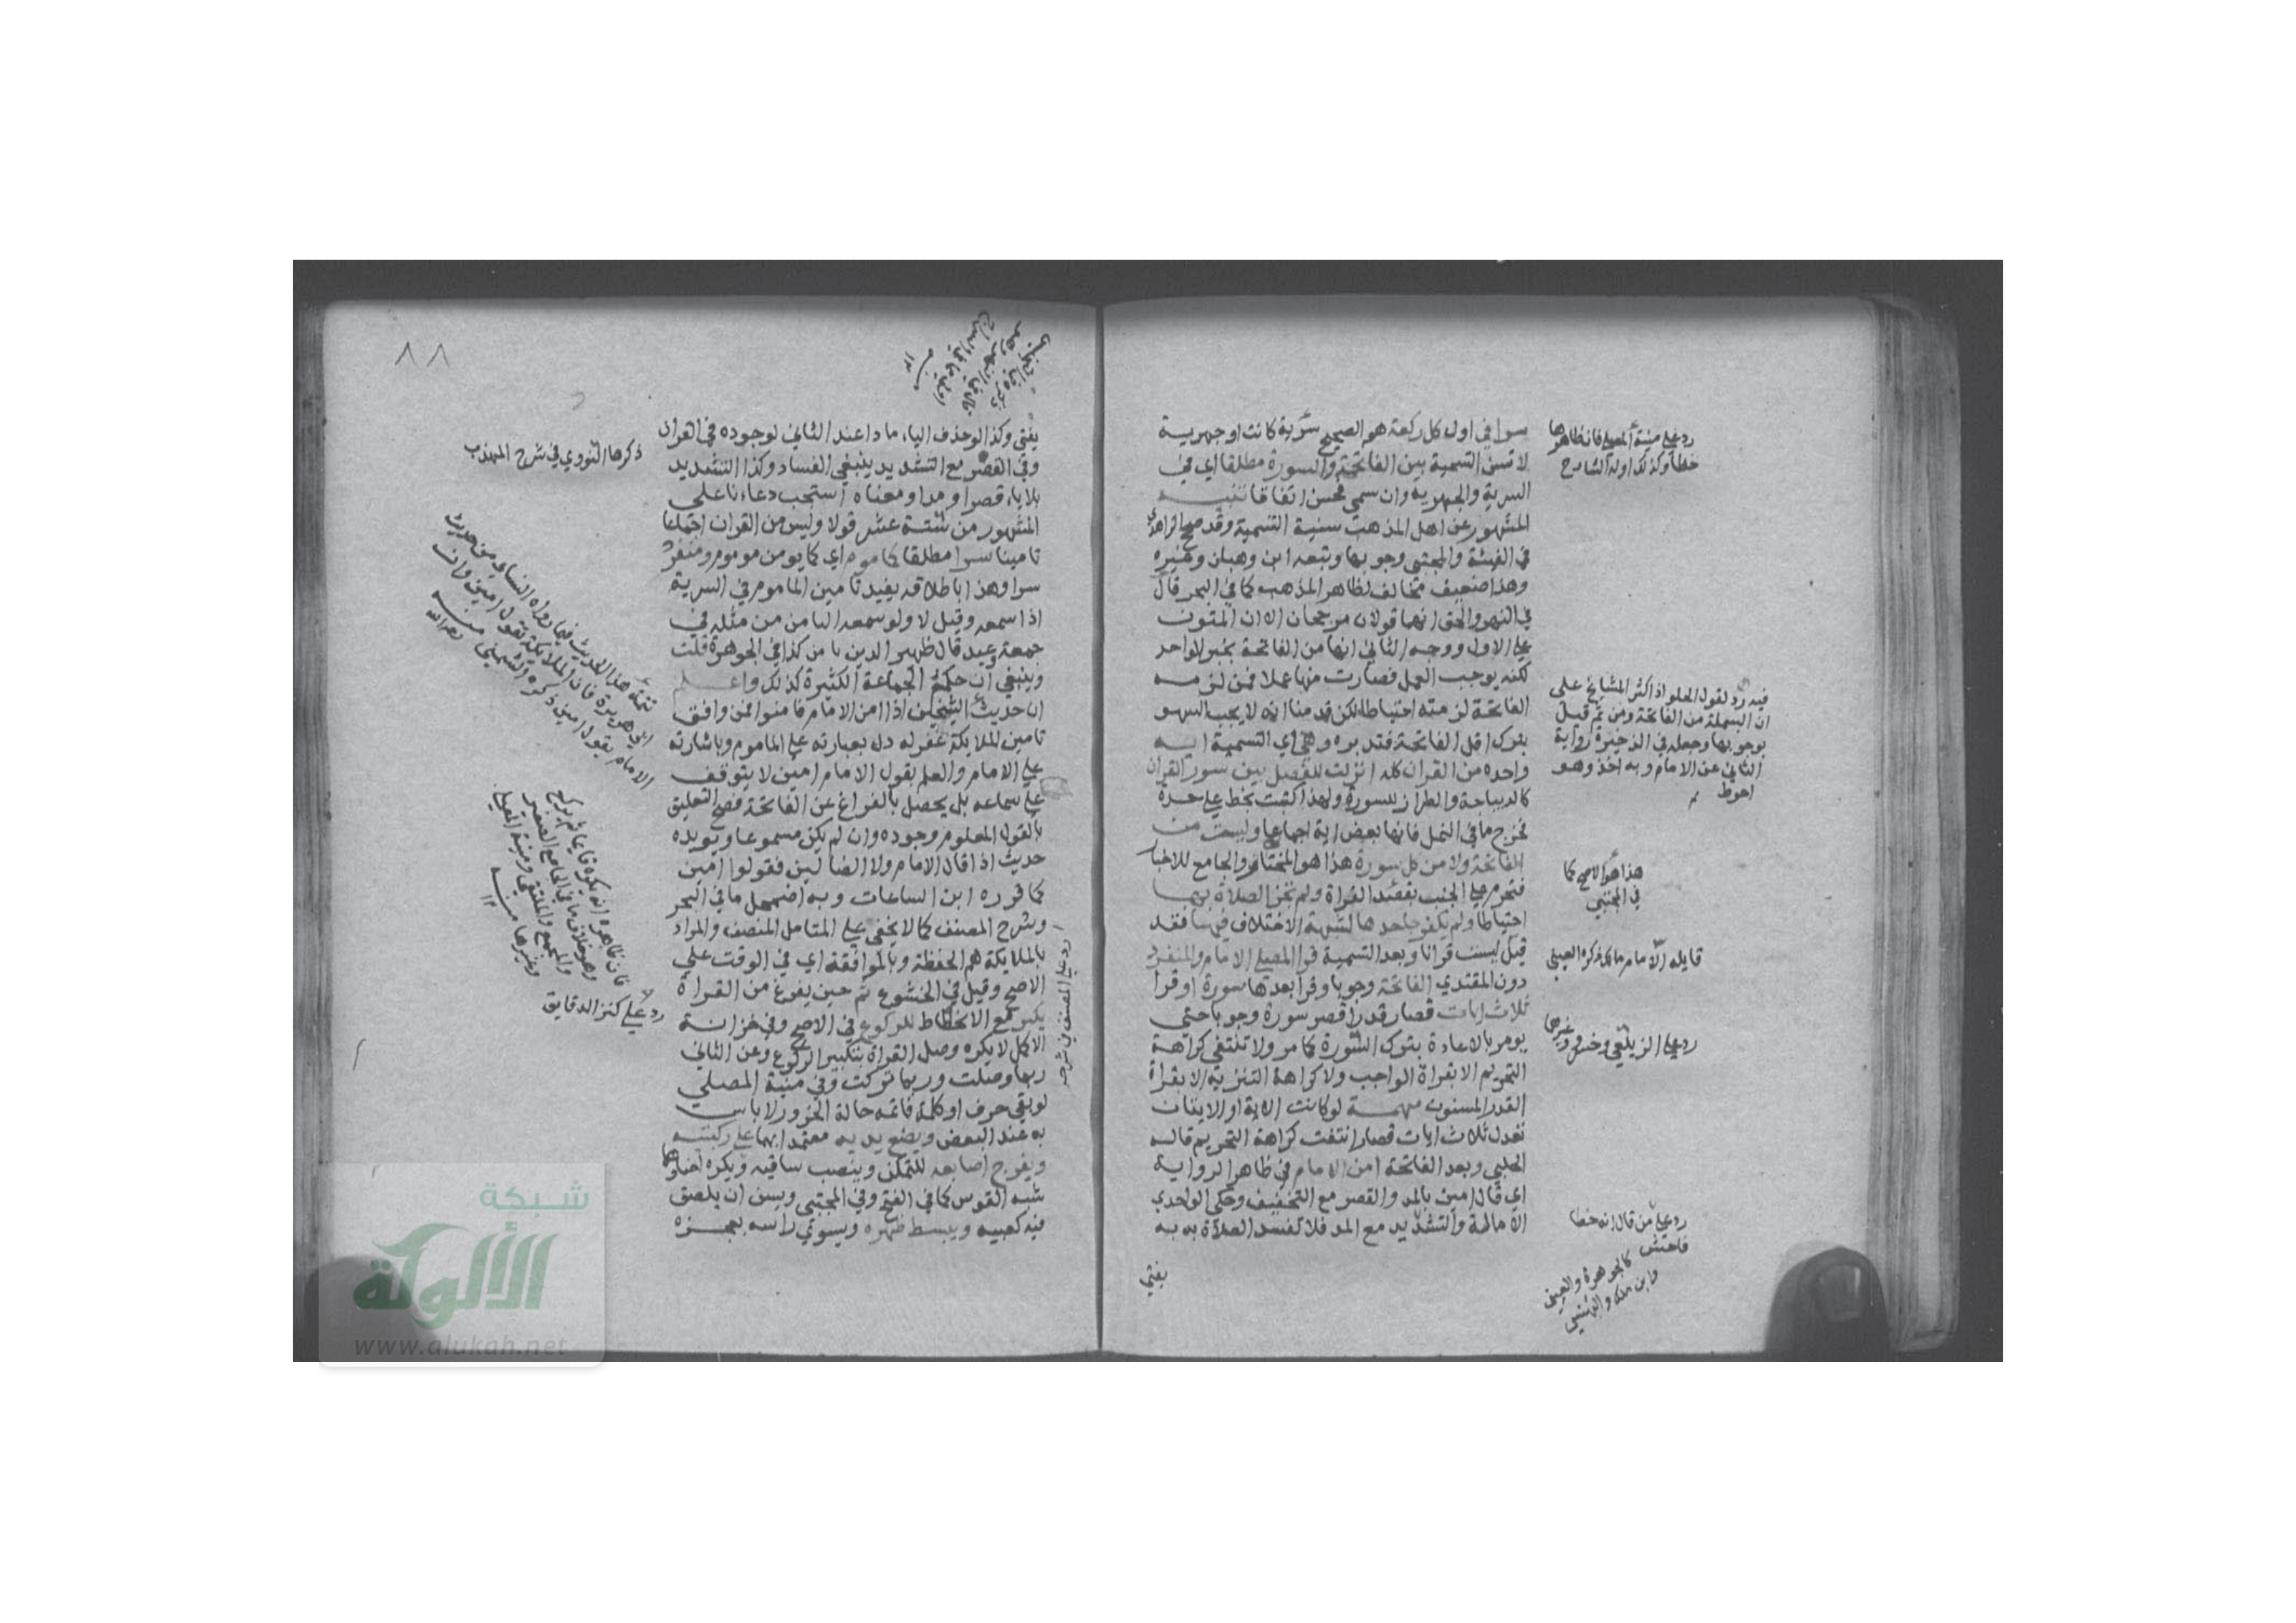 سرا في اول كل ركعة هو الصحيح سرية كانت او جهرية
لا تسن التسمية بين الفاتحة والسورة مطلقا اي في
السرية والجهرية وان سمي فحسن اتفاقا تنبيه
المشهور عن اهل المذهب سنية التسمية وقد صحح الزاهدي
في القنية والمجتبى وجوبها وتبعه ابن وهبان وغيره
وهذا ضعيف مخالف لظاهر المذهب كما في البحر قال
في النهر والحق انهما قولان مرجحان الا ان المتون
على الاول ووجه الثاني انها من الفاتحة بخبر الواحد
لكنه يوجب العمل فصارت منها عملا فمن لزمه
الفاتحة لزمته احتياطا لكن قدمنا انه لا يجب السهو
بترك اقل الفاتحة فتدبره وهي اي التسمية ايه
واحده من القران كله انزلت للفصل بين سور القران
كالديباجة والطراز للسورة ولهذا كتبت بخط على حدة
فخرج ما في النمل فانها بعض اية اجماعا وليست من
الفاتحة ولا من كل سورة هذا هو المختار والجامع للاخبار
فتحرم على الجنب بقصد القراة ولم تجز الصلاة بها
احتياطا ولم يكفر جاحدها لشبهة الاختلاف فيها فقد
قيل ليست قرانا وبعد التسمية قرا المصلي الامام والمنفرد
دون المقتدي الفاتحة وجوبا وقرا بعدها سورة او قرا
ثلاث ايات قصار قدر اقصر سورة وجوبا حتى
يومر بالاعادة بترك السورة كما مر ولا تنتفي كراهة
التحريم الا بقراة الواجب ولا كراهة التنزيه الا بقراة
القدر المسنون مهمة لو كانت الاية او الايتان
تعدل ثلاث ايات قصار انتفت كراهة التحريم قاله
الحلبي وبعد الفاتحة امن الامام في ظاهر الرواية
اي قال امين بالمد والقصر مع التخفيف وحكى الواحدي
الامالة والتشديد مع المد فلا تفسد الصلاة به به
يفتى
رد على منية المصلي فان ظاهرها
خطا وكذلك اوله الشارح
فيه رد لقول الحلواني اكثر المشايخ على
ان البسملة من الفاتحة ومن ثم قيل
بوجوبها وجعله في الذخيرة رواية
الثاني عن الامام وبه اخذ وهو
احوط
هذا هو الاصح كما
في المجتبى
قايله الامام مالك ذكره العيني
رد على الزيلعي وغيرها
رد على من قال انه خطا
فاحش
كالجوهرة والعيني
وابن ملك والبهنسي
٨٨
يفتى وكذا لو حذف الياء مادا عند الثاني لوجوده في القران
وفي القصر مع التشديد ينبغي الفساد وكذا التشديد
بلا ياء قصرا ومدا ومعناه استجب دعاءنا على
المشهور من ستة عشر قولا وليس من القران اجماعا
تامينا سرا مطلقا كماموم اي كما يومن ماموم ومنفرد
سرا وهذا باطلاقه يفيد تامين الماموم في السرية
اذا سمعه وقيل لا ولو سمعه الثامن من مثله في
جمعة وعيد قال ظهير الدين يامن كذا في الجوهرة قلت
وينبغي ان حكم الجماعة الكثيرة كذلك واعلم
ان حديث الشيخين اذا امن الامام فامنوا فمن وافق
تامين الملايكة غفر له دل بعبارته على الماموم وباشارته
على الامام والعلم بقول الامام امين لا يتوقف
على سماعه بل يحصل بالفراغ عن الفاتحة فصح التعليق
بالقول المعلوم وجوده وان لم يكن مسموعا ويويده
حديث اذا قال الامام ولا الضالين فقولوا امين
كما قرره ابن الساعاتى وبه اضمحل ما في البحر
وشرح المصنف كما لا يخفى على المتامل المنصف والمراد
بالملايكة هم الحفظة وبالموافقة اي في الوقت على
الاصح وقيل في الخشوع ثم حين يفرغ من القراة
يكبر مع الانحطاط للركوع في الاصح وفي خزانة
الاكمل لا يكره وصل القراة بتكبير الركوع وعن الثاني
ربما وصلت وربما تركت وفي منية المصلي
لو بقي حرف او كلمة فاتمه حالة الخرور لا باس
به عند البعض ويضع يديه معتمدا بهما على ركبتيه
ويفرج اصابعه للتمكن وينصب ساقيه ويكره احناوهما
شبه القوس كما في الفتح وفي المجتبى ويسن ان يلصق
فيه كعبيه ويبسط ظهره ويسوي راسه بعجزه
ذكرها النووي في شرح المهذب
تتمة هذا الحديث فيما رواه النسائي من حديث
ابي هريرة فان الملايكة تقول امين وان
الامام يقول امين ذكره الشمني
رحمه الله
فان ظاهره انه يكبره قايما ثم يركع
وهو خلاف ما في الجامع الصغير
والمجمع والملتقى ومنية المصلي
وغيرها
رد على كنز الدقايق
رد على المصنف في شرحه
شبكة
الألوكة
www.alukah.net